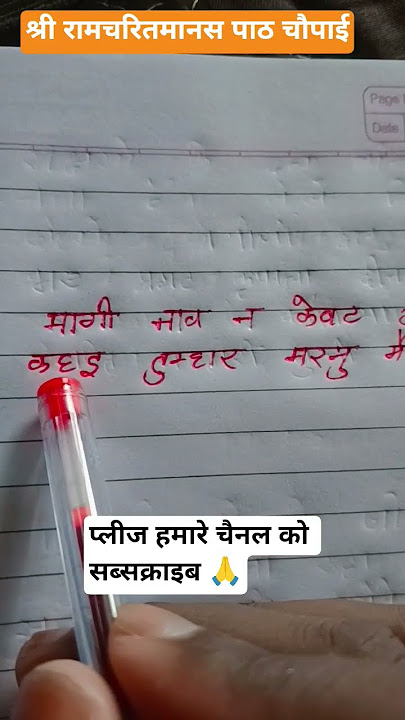 श्री रामचरितमानस पाठ चौपाई
Page
Date
मागी नाव न केवट
कहइ तुम्हार मरमु
प्लीज हमारे चैनल को
सब्सक्राइब 🙏